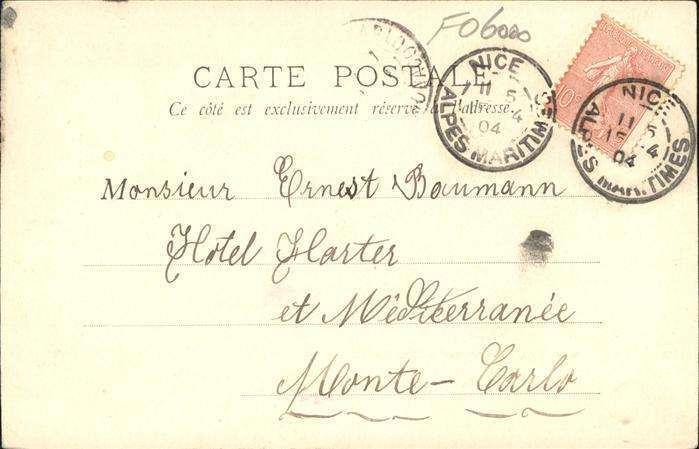 F06000
CARTE POSTALE
Ce côté est exclusivement réservé à l'adresse
NICE
11 5
ALPES MARITIMES
04
NICE
11 5
15 4
04
ALPES MARITIMES
10
Monsieur Ernest Baumann
Hôtel Harter
et Méditerranée
Monte-Carlo